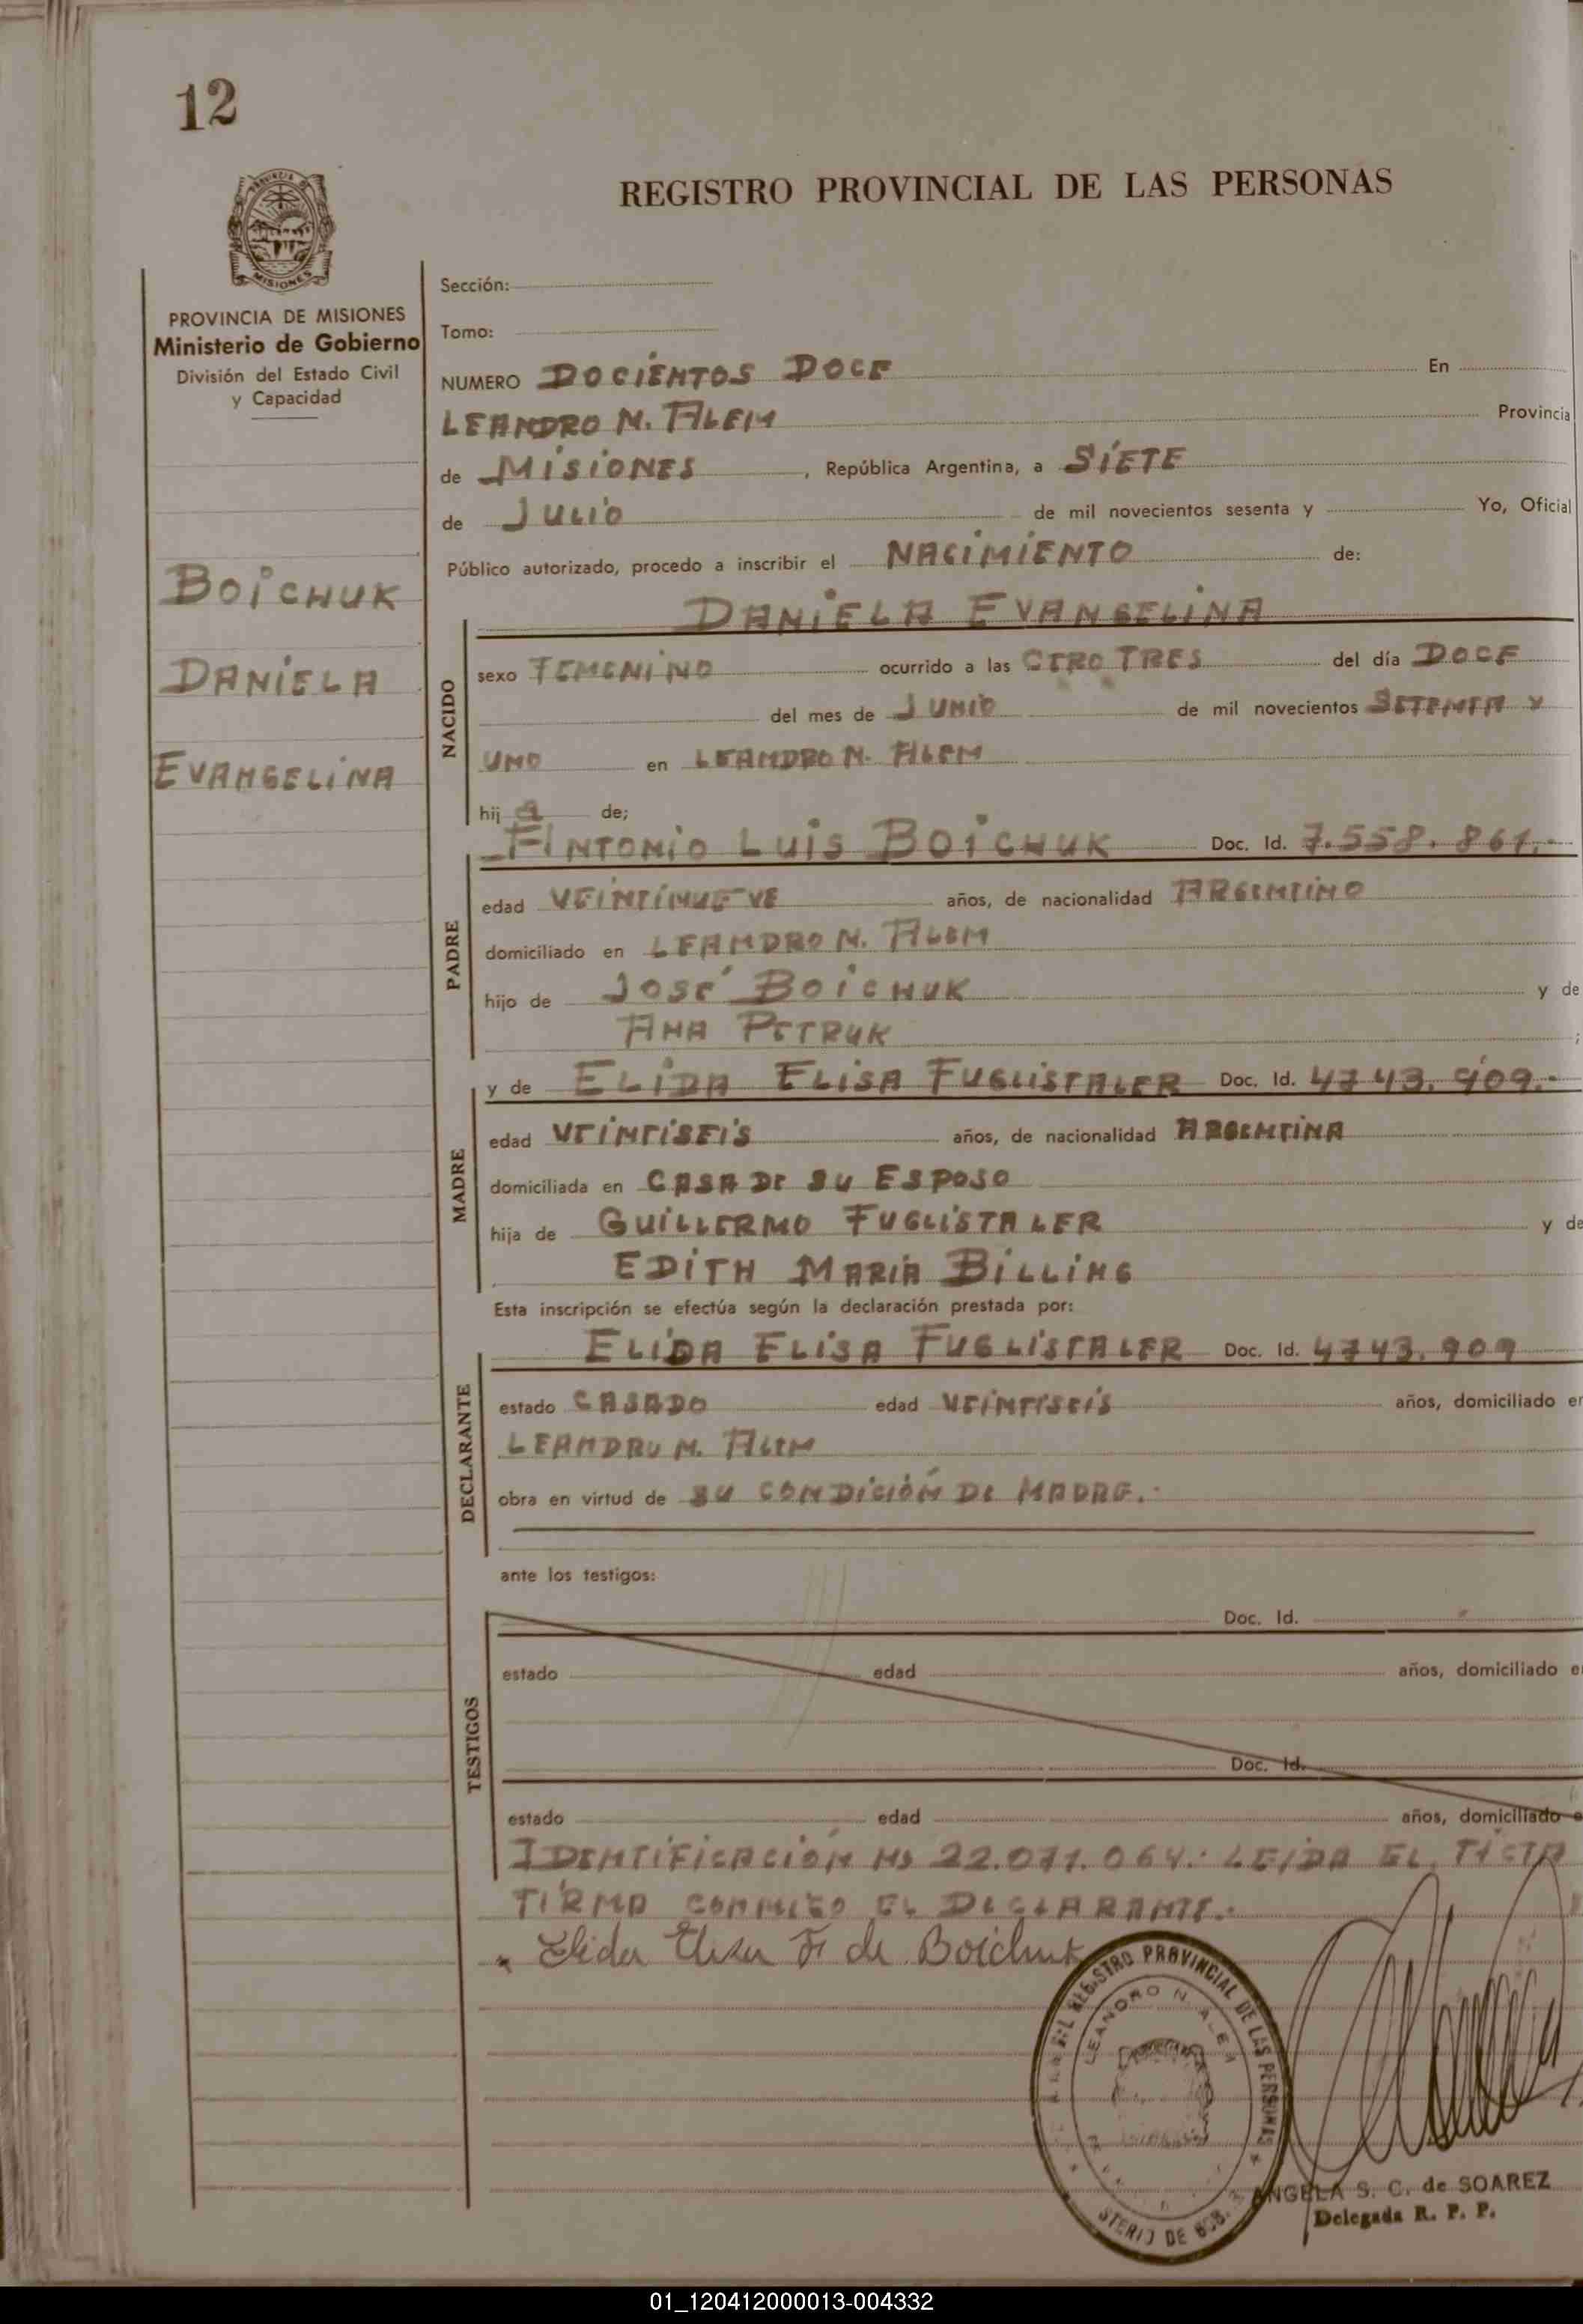 12
REGISTRO PROVINCIAL DE LAS PERSONAS
PROVINCIA DE MISIONES
Ministerio de Gobierno
División del Estado Civil
y Capacidad
BOICHUK
DANIELA
EVANGELINA
Sección:
Tomo:
NUMERO DOCIENTOS DOCE En
LEANDRO N. ALEM Provincia
de MISIONES, República Argentina, a SIETE
de JULIO de mil novecientos sesenta y Yo, Oficial
Público autorizado, procedo a inscribir el NACIMIENTO de:
DANIELA EVANGELINA
NACIDO
sexo FEMENINO ocurrido a las CERO TRES del día DOCE
del mes de JUNIO de mil novecientos SETENTA Y
UNO en LEANDRO N. ALEM
hij a de;
ANTONIO LUIS BOICHUK Doc. Id. 7.558.861.-
PADRE
edad VEINTINUEVE años, de nacionalidad ARGENTINO
domiciliado en LEANDRO N. ALEM
hijo de JOSÉ BOICHUK y de
ANA PETRUK ;
y de ELIDA ELISA FUGLISTALER Doc. Id. 4743.909.-
MADRE
edad VEINTISEIS años, de nacionalidad ARGENTINA
domiciliada en CASA DE SU ESPOSO
hija de GUILLERMO FUGLISTALER y de
EDITH MARIA BILLING
Esta inscripción se efectúa según la declaración prestada por:
ELIDA ELISA FUGLISTALER Doc. Id. 4743.909
DECLARANTE
estado CASADO edad VEINTISEIS años, domiciliado en
LEANDRO N. ALEM
obra en virtud de SU CONDICIÓN DE MADRE.-
ante los testigos:
TESTIGOS
Doc. Id.
estado edad años, domiciliado e
Doc. Id.
estado edad años, domiciliado e
IDENTIFICACIÓN Nº 22.071.064.- LEIDA EL ACTA
FIRMA CONMIGO EL DECLARANTE.-
Elida Elisa F. de Boichuk
REGISTRO PROVINCIAL DE LAS PERSONAS
LEANDRO N. ALEM
STERIO DE GOB.
ANGELA S. C. de SOAREZ
Delegada R. P. P.
01_120412000013-004332